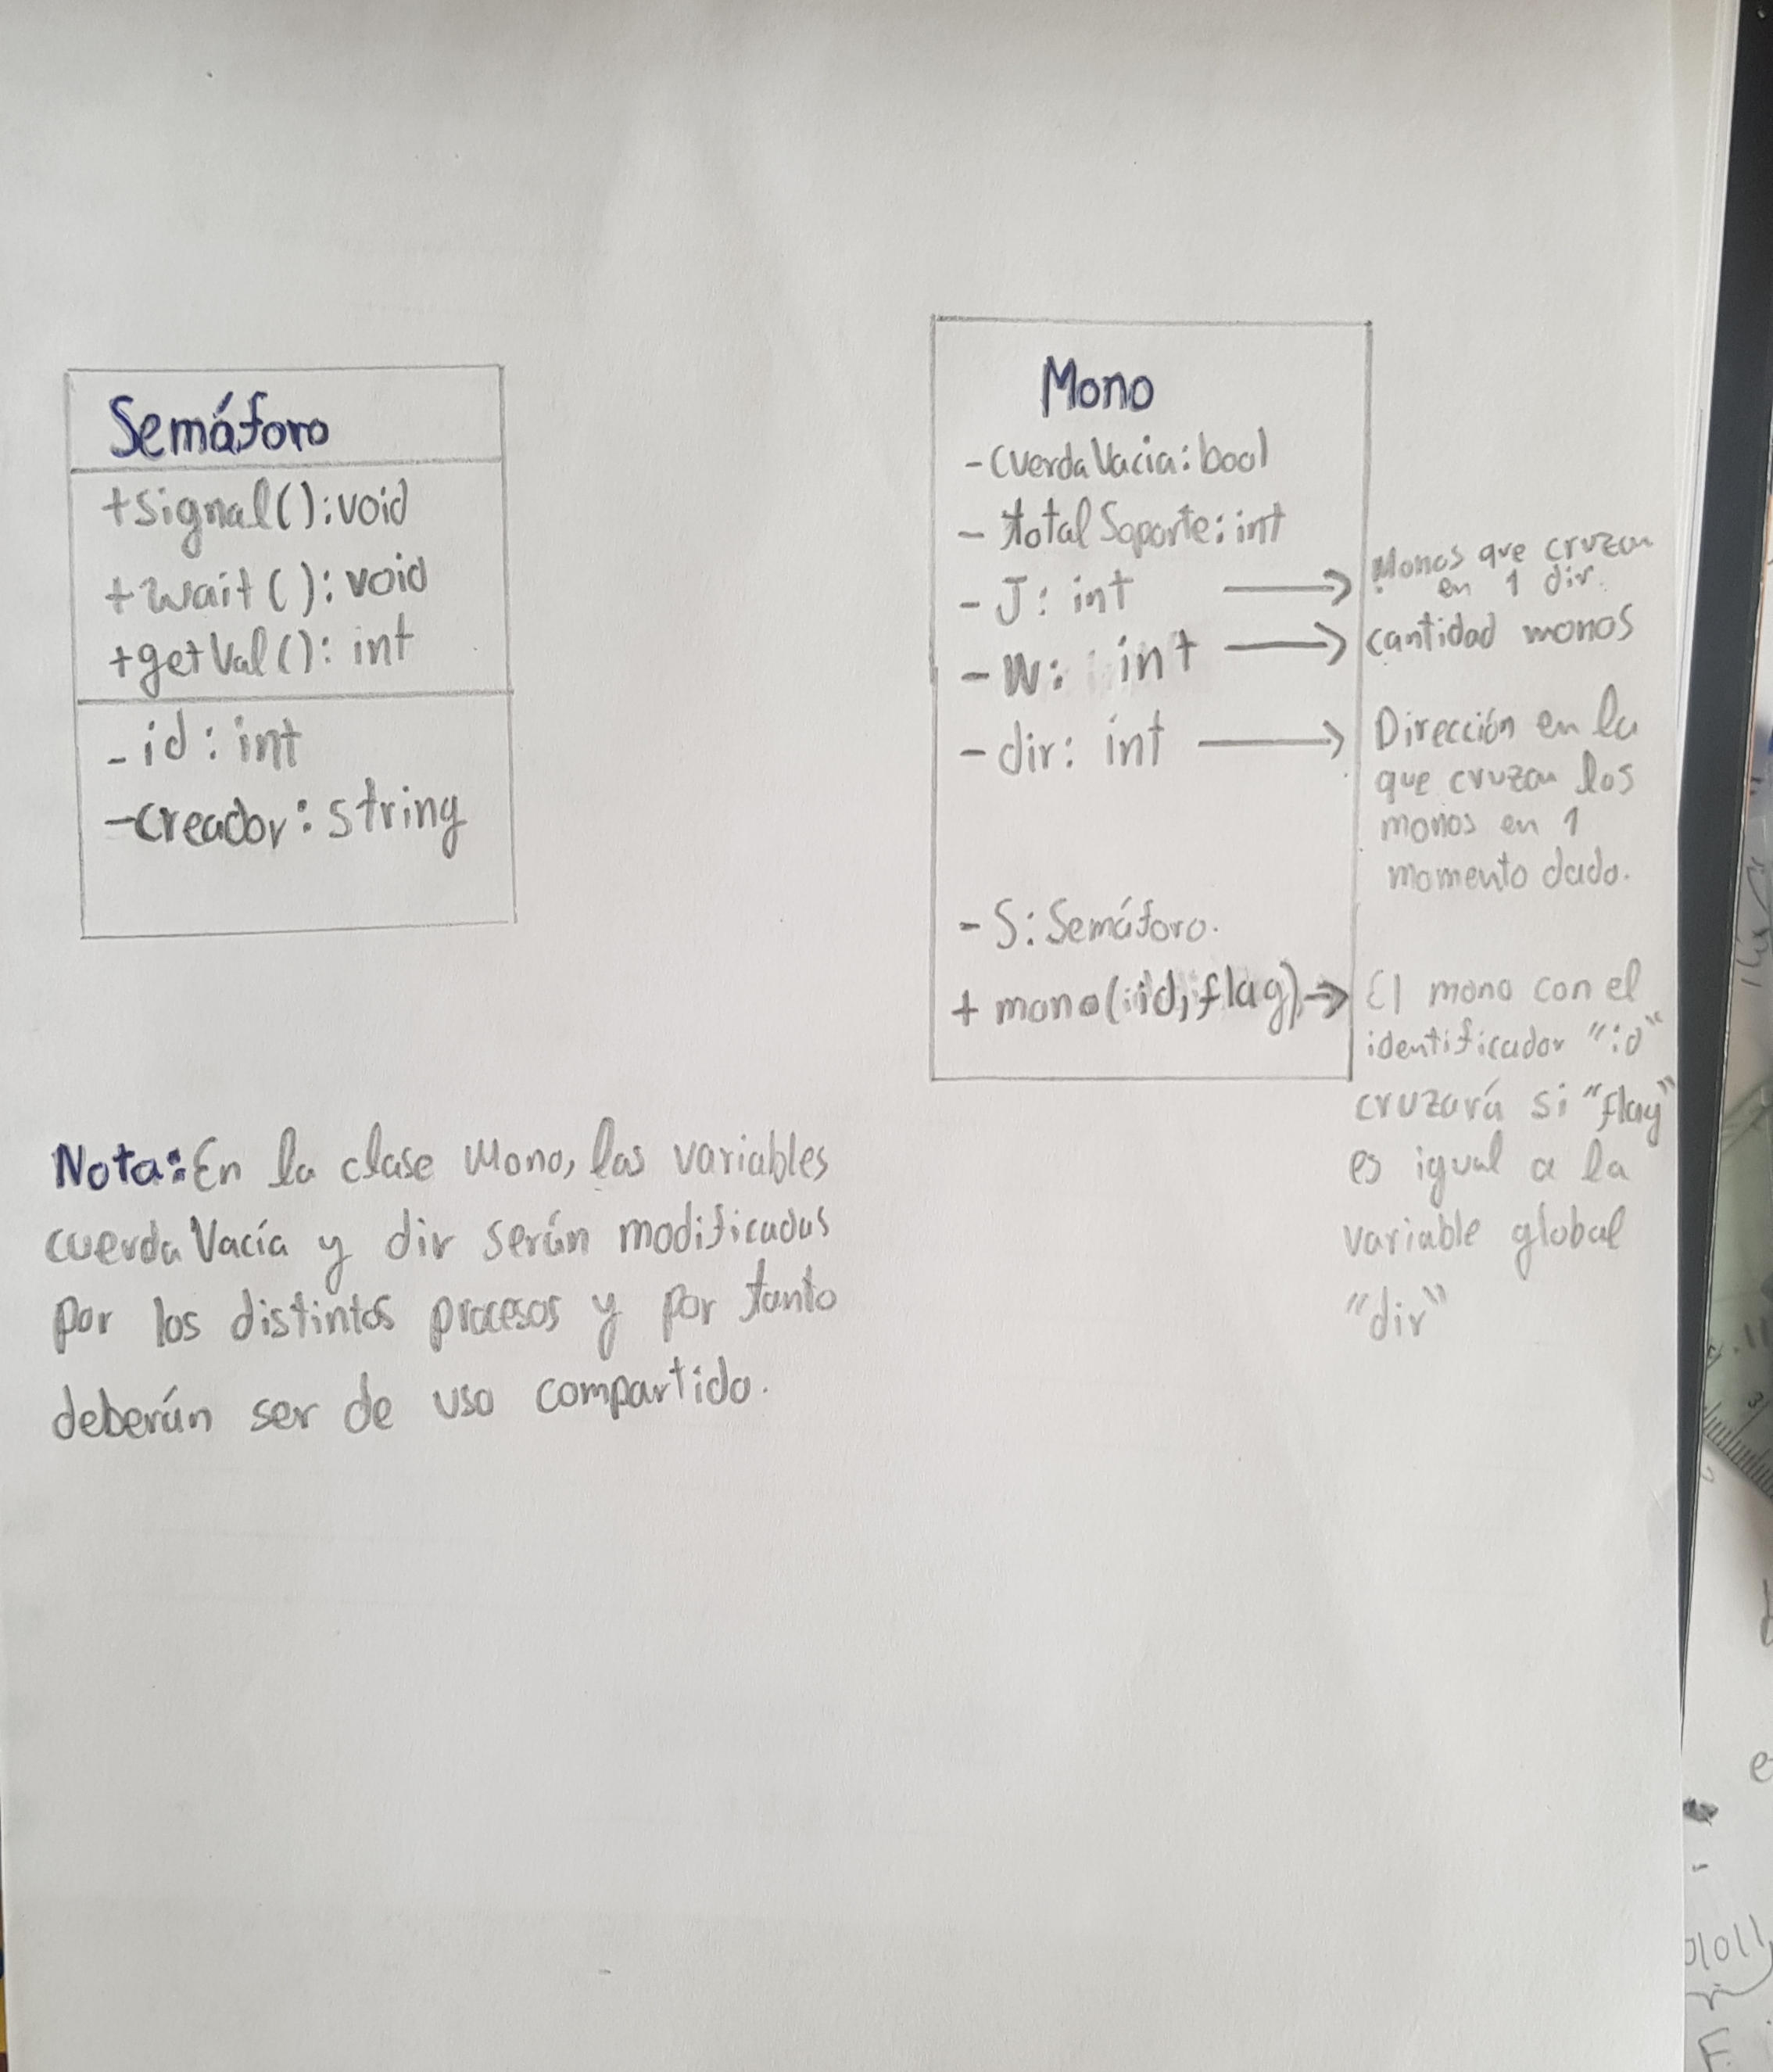 Semáforo
+signal():void
+wait():void
+getVal():int
-id:int
-creador:string
Mono
-cuerdaVacia:bool
-totalSoporte:int
-J:int → Monos que cruzan
en 1 dir.
-N: int → cantidad monos
-dir: int → Dirección en la
que cruzan los
monos en 1
momento dado.
-S:Semáforo.
+ mono(id, flag) → El mono con el
identificador "id"
cruzará si "flag"
es igual a la
variable global
"dir"
Nota: En la clase Mono, las variables
cuerdaVacía y dir serán modificadas
por los distintos procesos y por tanto
deberán ser de uso compartido.